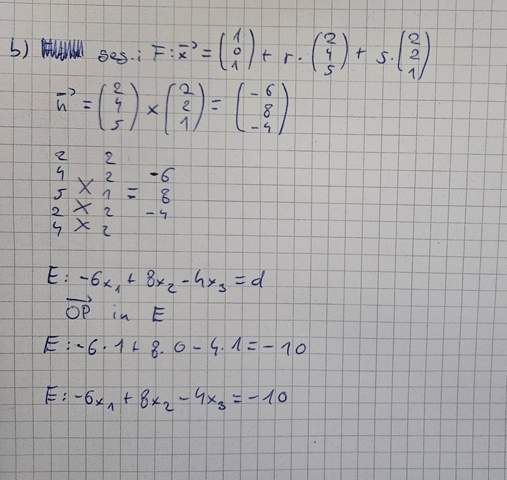 b) ges.: F: x⃗ = (1 0 1) + r · (2 4 5) + s · (2 2 1)
n⃗ = (2 4 5) × (2 2 1) = (-6 8 -4)
2 2
4 2 -6
5 × 1 = 8
2 × 2 -4
4 × 2
E: -6x₁ + 8x₂ - 4x₃ = d
OP⃗ in E
E: -6 · 1 + 8 · 0 - 4 · 1 = -10
E: -6x₁ + 8x₂ - 4x₃ = -10